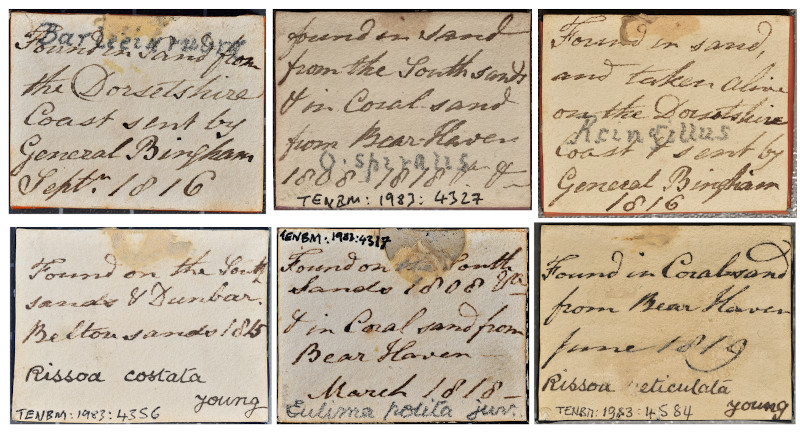 Barleeia rubra
Found in sand from
the Dorsetshire
Coast sent by
General Bingham
Septr. 1816
found in sand
from the South sands
& in Coral-sand
from Bear-Haven
O. spiralis
1808 1818
TENBM: 1983: 4327
Found in sand,
and taken alive
on the Dorsetshire
Coast & sent by
General Bingham
1816
Found on the South
sands & Dunbar.
Belton sands 1815
Rissoa costata
young
TENBM: 1983: 4356
TENBM: 1983: 4317
Found on the South
Sands 1808 &c
& in Coral sand from
Bear Haven
March 1818
Eulima polita juv.
Found in Coral-sand
from Bear Haven
June 1819
Rissoa reticulata
young
TENBM: 1983: 4584